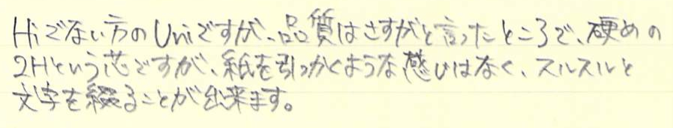 Hiでない方のUniですが、品質はさすがと言ったところで、硬めの
2Hという芯ですが、紙を引っかくような感じはなく、スルスルと
文字を綴ることが出来ます。